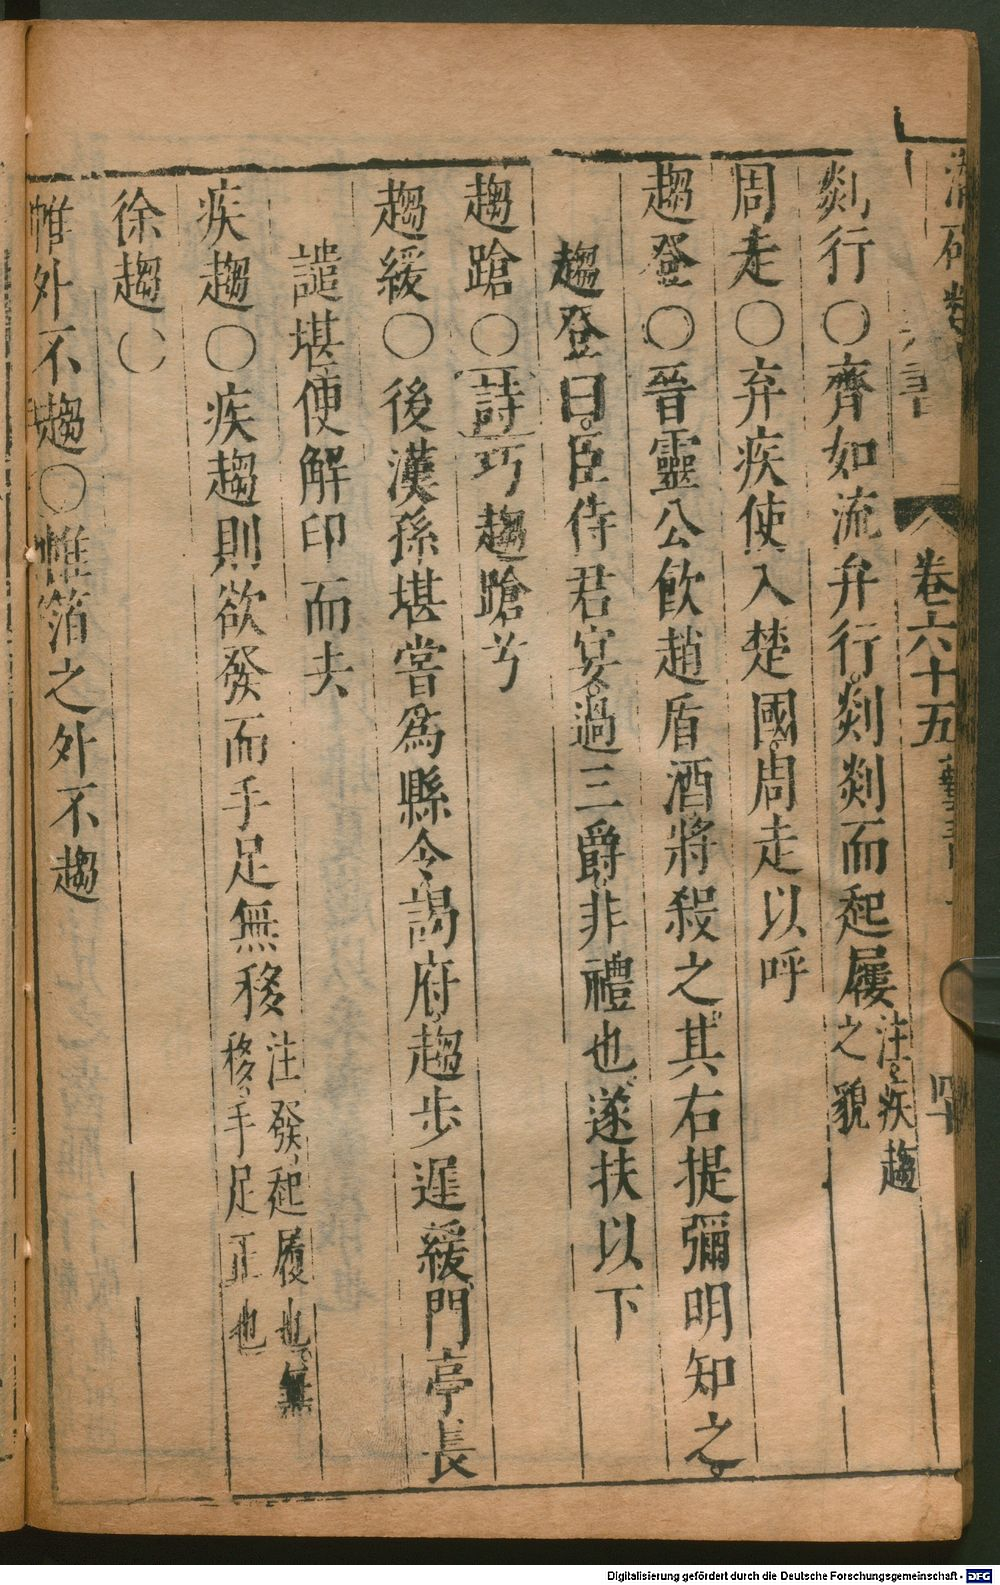 卷六十五
剡行○齊如流弁行。剡剡而起屨注、疾趨之貌
周走○弃疾使入楚國周走以呼
趨登○晉靈公飲趙盾酒將殺之。其右提彌明知之。
趨登曰。臣侍君宴。過三爵非禮也遂扶以下
趨蹌○詩巧趨蹌兮
趨緩○後漢孫堪嘗爲縣令、謁府、趨步遲緩、門亭長
譴堪、使解印而去
疾趨○疾趨則欲發而手足無移注發、起履也。無移、手足正也
徐趨○
帷外不趨○帷箔之外不趨
Digitalisierung gefördert durch die Deutsche Forschungsgemeinschaft - DFG